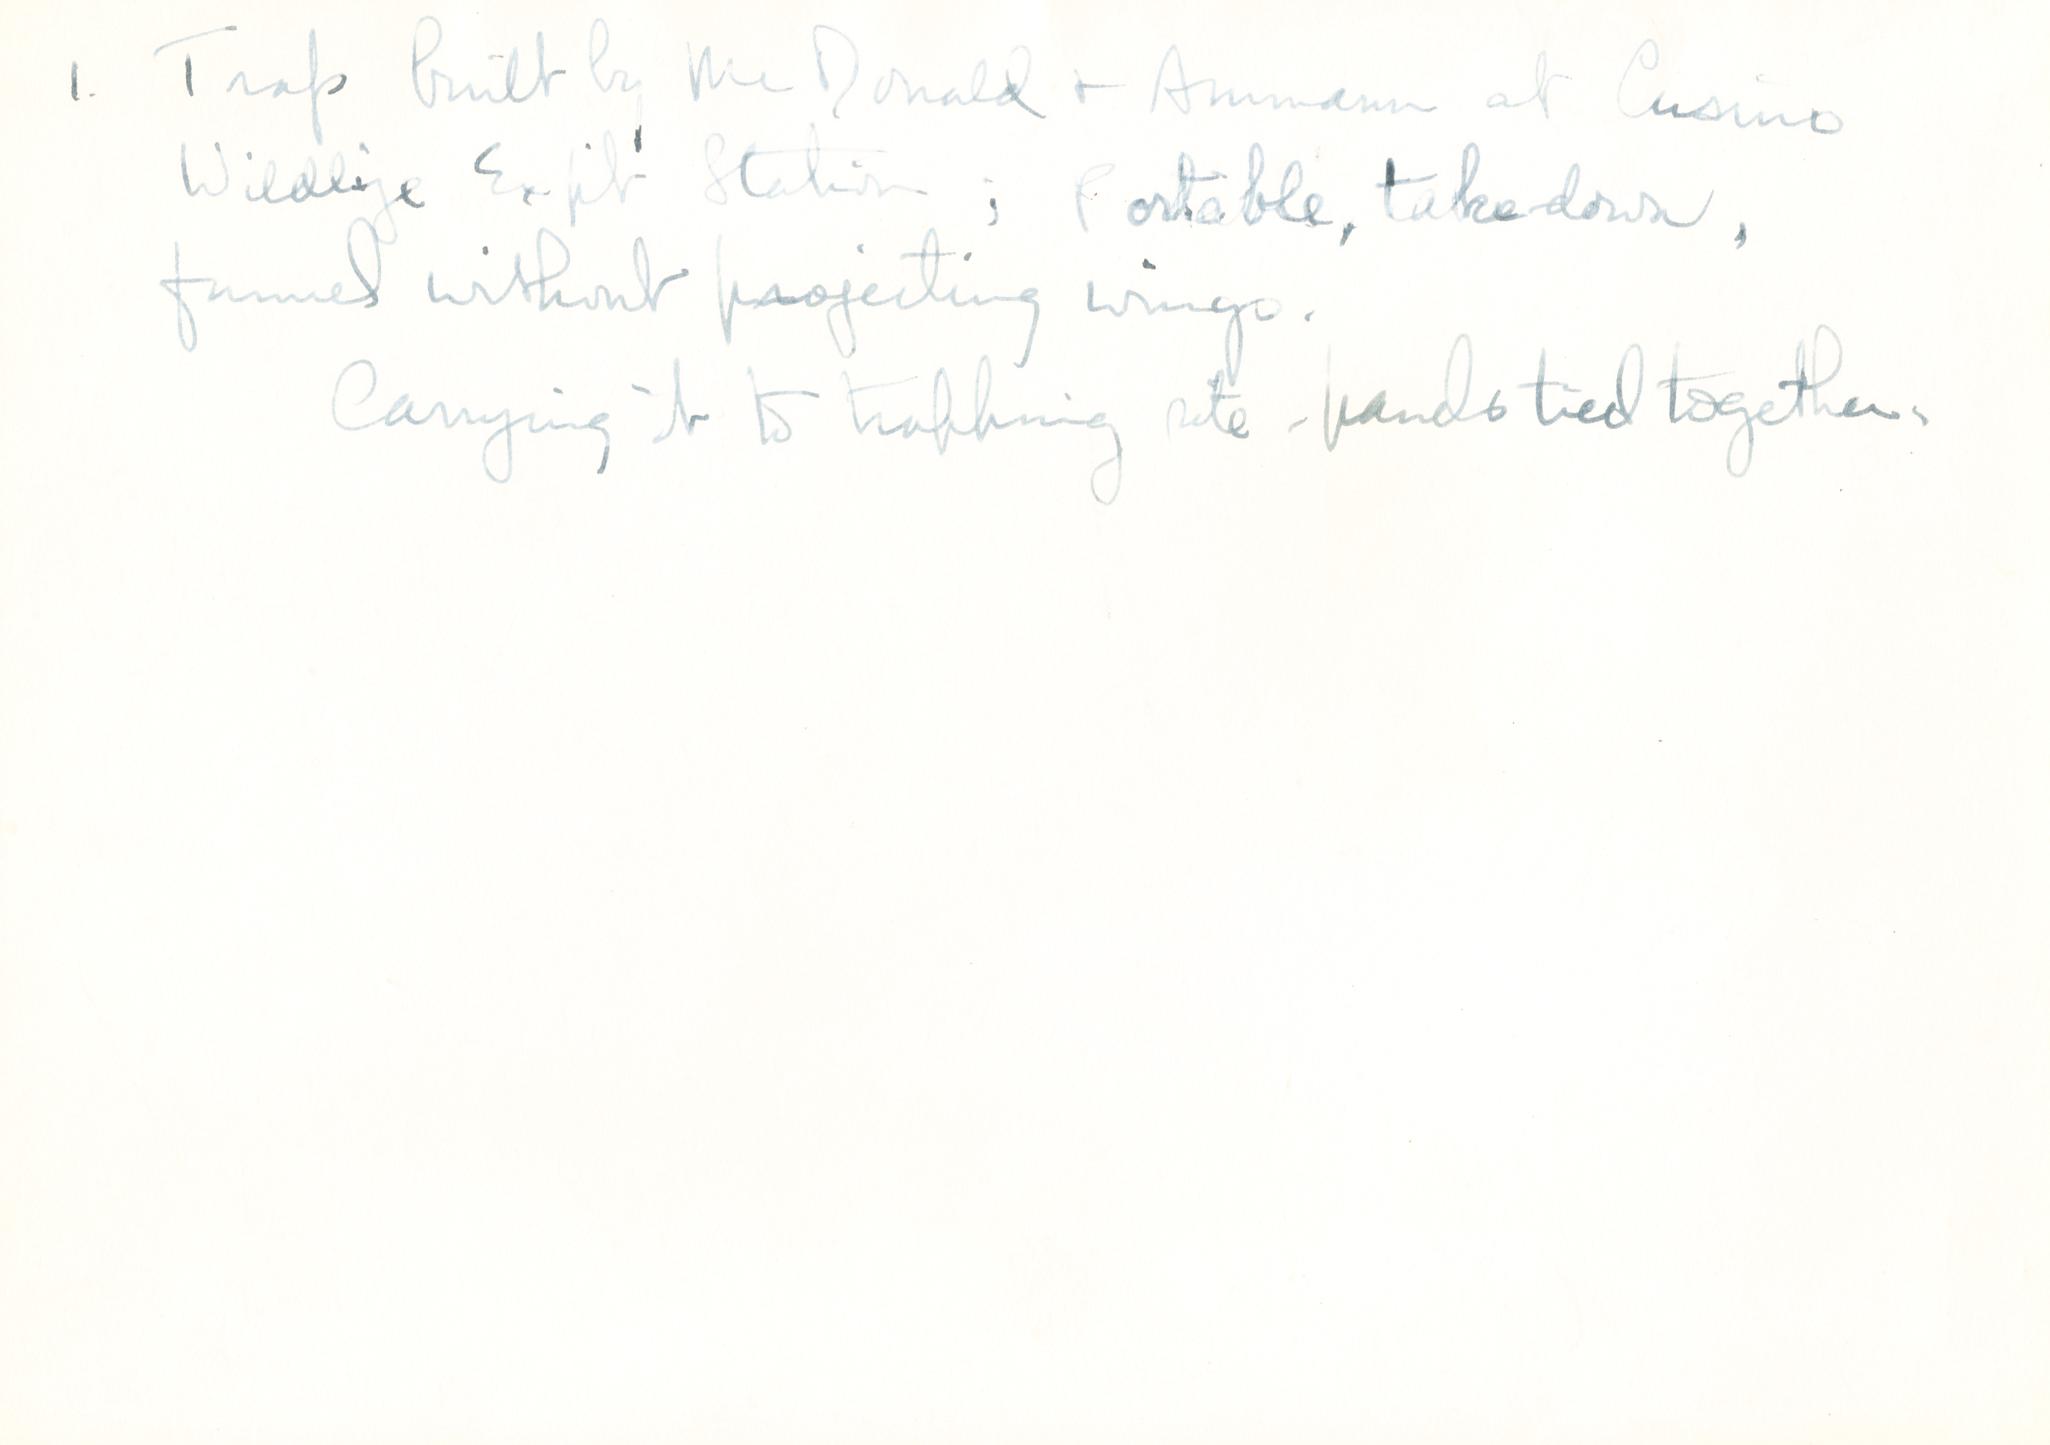 1. Trap built by McDonald + Ammann at Cusino
Wildlife Exp't Station; Portable, takedown,
funnel without projecting wings.
Carrying it to trapping site - panels tied together.